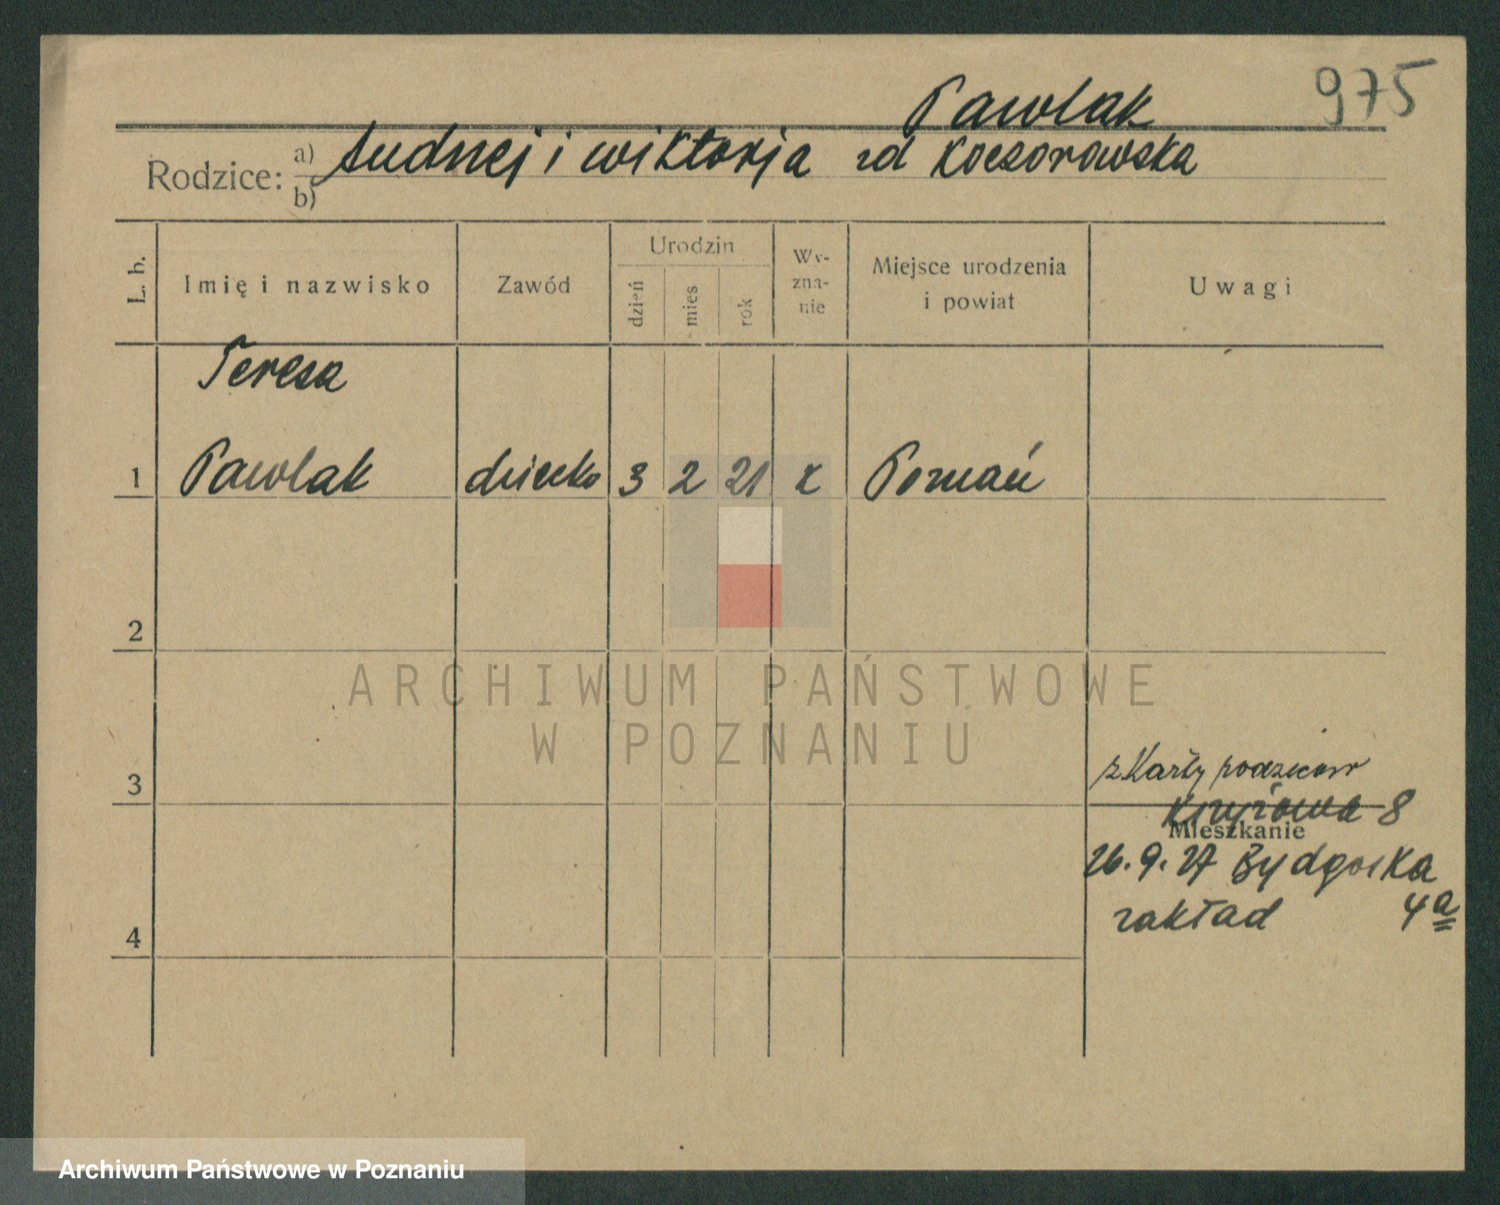 975
Pawlak
Rodzice: a) Andrzej i wiktorja zd Koczorowska
b)
L. b. Imię i nazwisko Zawód Urodzin dzień mies rok Wyznanie Miejsce urodzenia i powiat Uwagi
Teresa
1 Pawlak dziecko 3 2 21 k Poznań
2
ARCHIWUM PAŃSTWOWE
W POZNANIU
z Karty rodziców
3
Krzyżowa 8
Mieszkanie
26. 9. 27 Bydgoska
zakład 4a
4
Archiwum Państwowe w Poznaniu